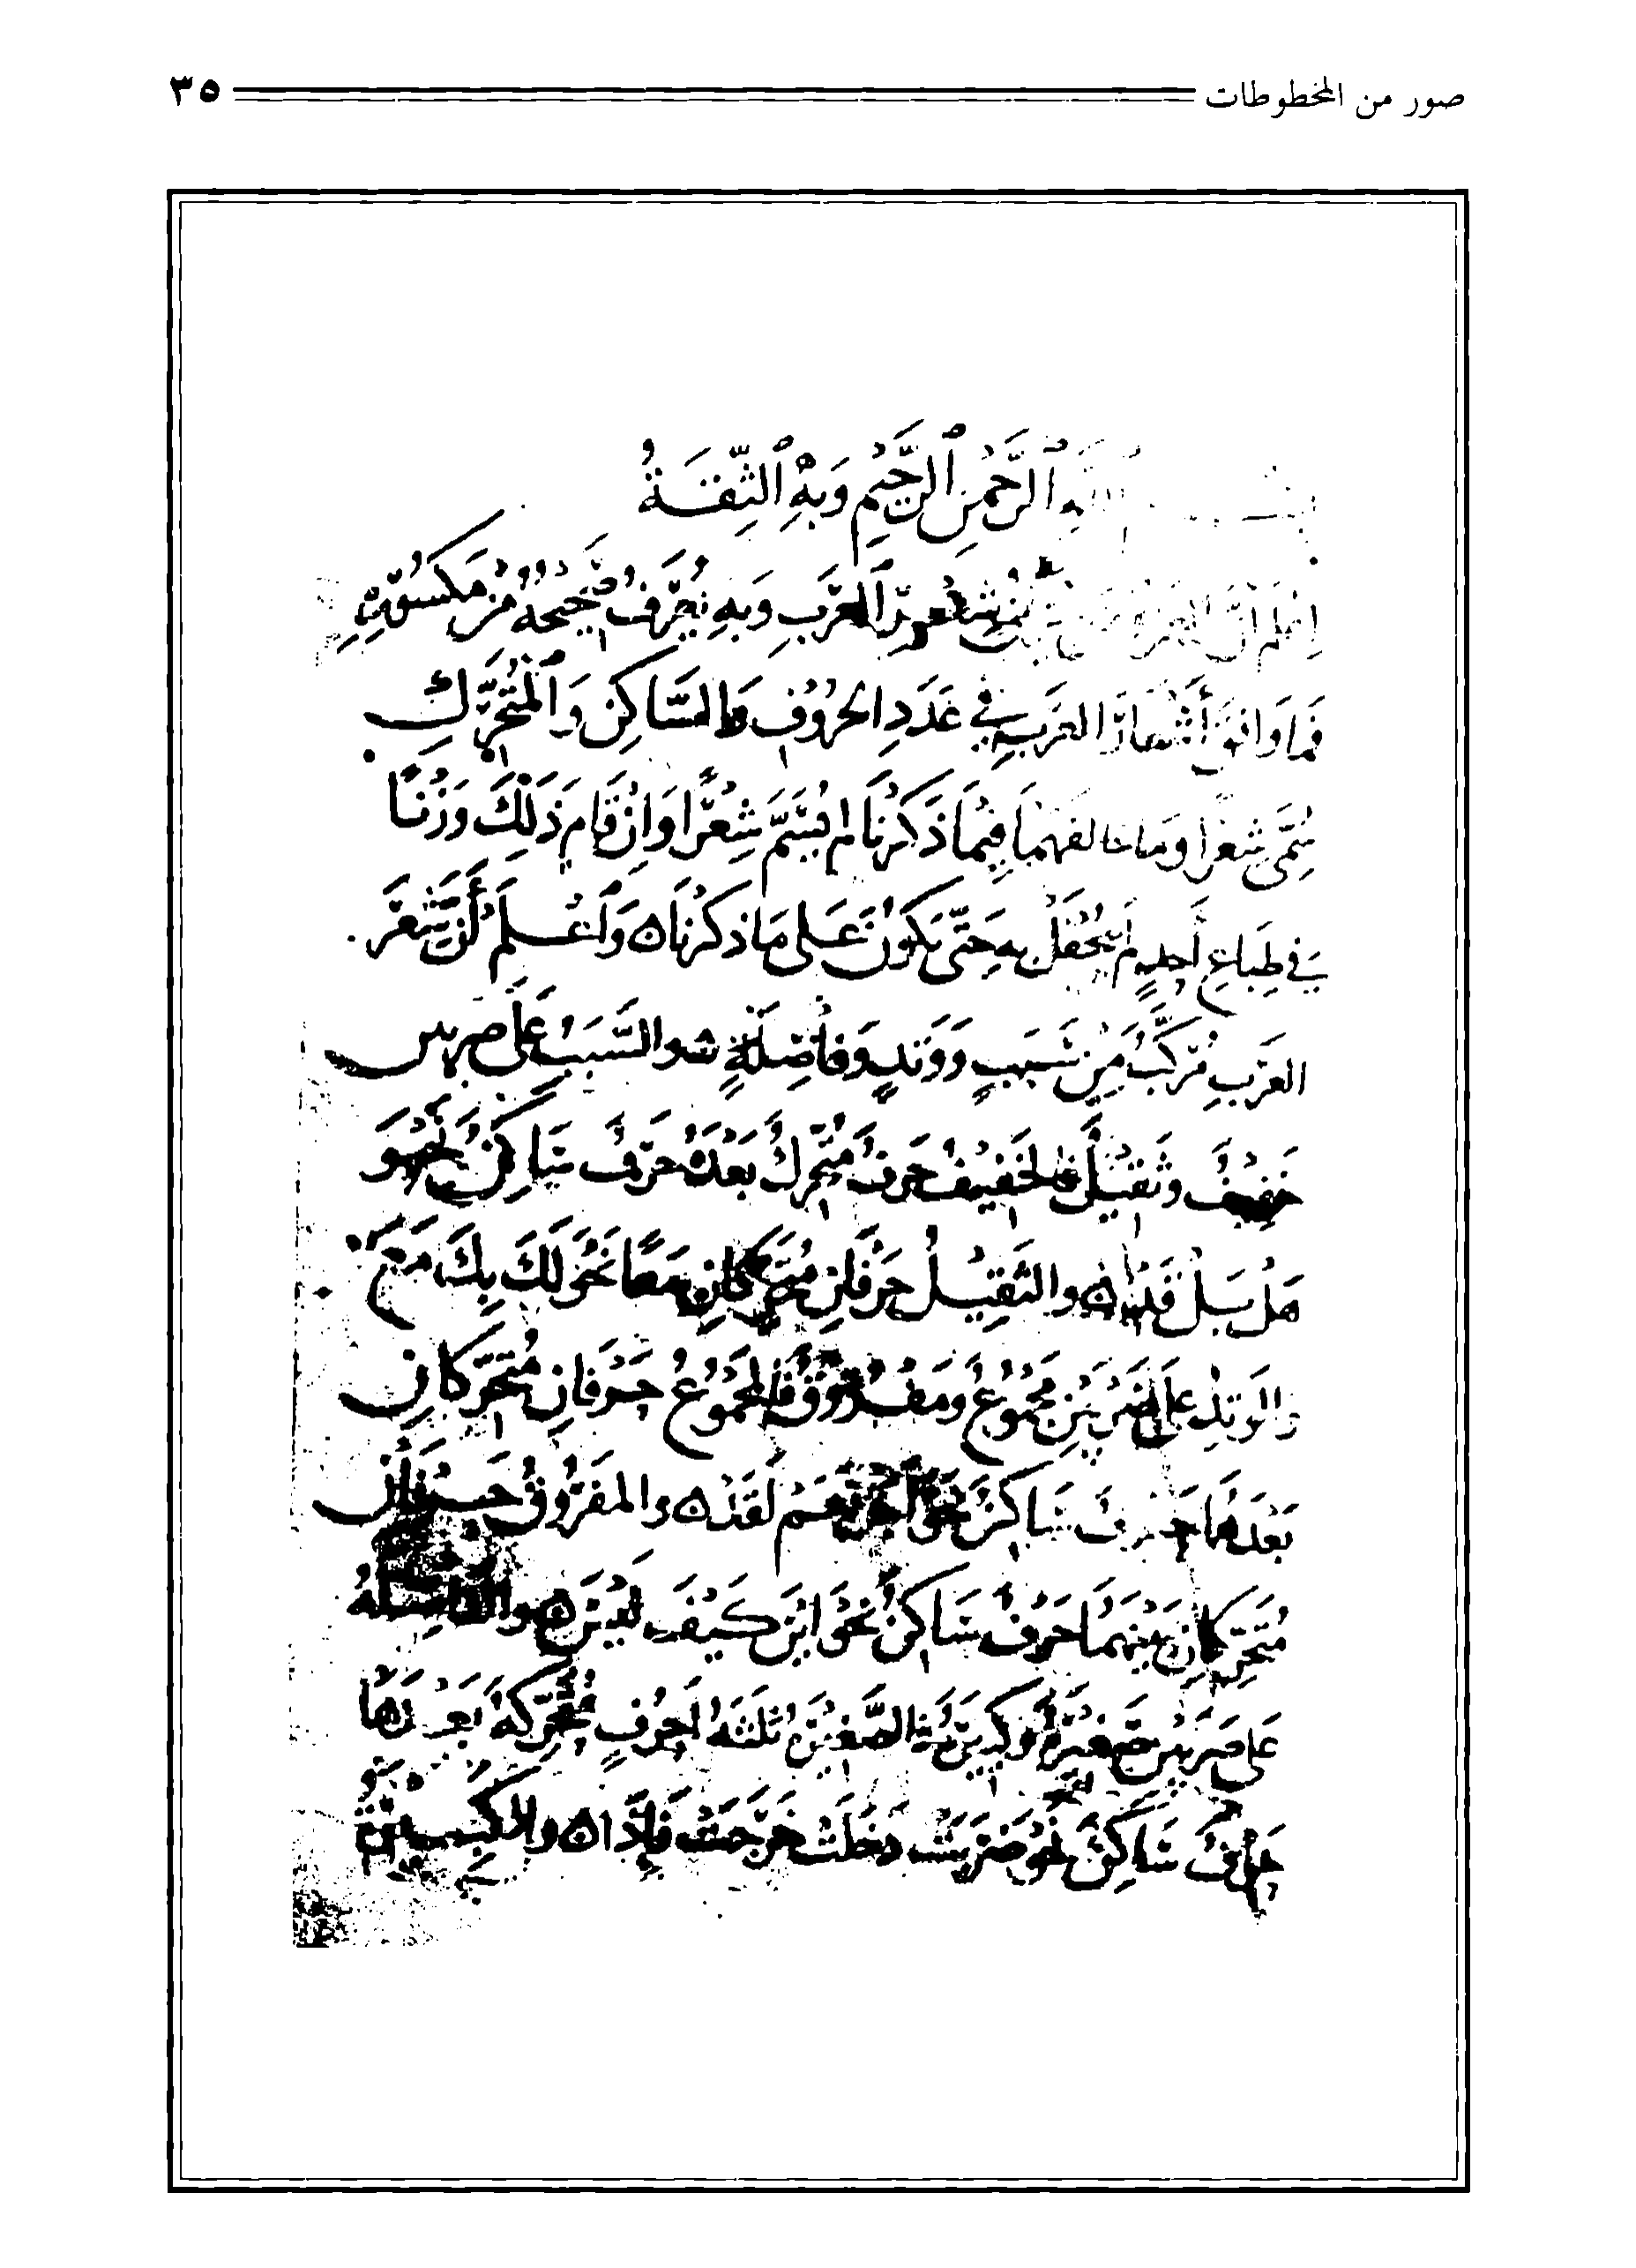 صور من المخطوطات ٣٥
الله الرَّحْمٰنِ الرَّحِيْمِ وَبِهِ الثِّقَةُ
اِعْلَم أنَّ العَرُوْضَ مِيزان شعر العَرَبِ وَبِهِ يُعْرَفُ صَحِيْحُهُ مِنْ مَكْسُوْرِهِ
فَمَا وَافَقَ أَشْعَارَ العَرَبِ فِي عَدَدِ الحُرُوْفِ والسَّاكِنِ وَالْمُتَحَرِّكِ
سُمِّيَ شِعْرًا وَمَا خالفه فِيْمَا ذَكَرْنَا لم يُسَمَّ شِعْرًا وَإِنْ قَامَ ذَلِكَ وَزْنًا
فِي طِبَاعِ أَحَدٍ لم يُحْفَلْ بِهِ حَتَّى يَكُوْنَ عَلى مَا ذكَرْنَا ه وَاعْلَمْ أَنَّ شِعْرَ
العَرَبِ مُرَكَّبٌ مِنْ سَبَبٍ وَوَتَدٍ وَفَاصِلَةٍ ه والسَّبَبُ عَلَى ضربين
خَفِيْفٌ وثَقِيْلٌ فالخَفِيْفُ حَرْفٌ مُتَحَرِّكٌ بَعْدَهُ حَرْفٌ سَاكِنٌ نَحْو
هَلْ بَلْ قَدْ ه والثَّقِيْلُ حَرْفَانِ مُتَحَرِّكَانِ مَعًا نَحْوُ لَكَ بِكَ مَعَ
والوَتِدُ عَلَى ضَرْبَيْنِ مَجْمُوْعٌ ومَفْرُوْقٌ فالمَجْمُوْعُ حَرْفَانِ مُتَحَرِّكَانِ
بَعْدَهُمَا حَرْفٌ سَاكِنٌ نَحْوُ أَجَلْ نَعَمْ لَقَدْ ه والمَفْرُوْقُ حَرْفَانِ
مُتَحَرِّكَانِ بَيْنَهُمَا حَرْفٌ سَاكِنٌ نَحْوُ ايْنَ كَيْفَ لَيْسَ ه والفَاصِلَةُ
عَلَى ضَرْبَيْنِ صَغِيْرَةٌ وَكَبِيْرَةٌ فالصَّغِيْرَةُ ثَلثَةُ أَحْرُفٍ مُتَحَرِّكَةٍ بَعْدَهَا
حَرْفٌ سَاكِنٌ نَحْوُ ضَرَبَتْ دَخَلَتْ خَرَجَتْ فَإِذَا ه والكَبِيْرَةُ